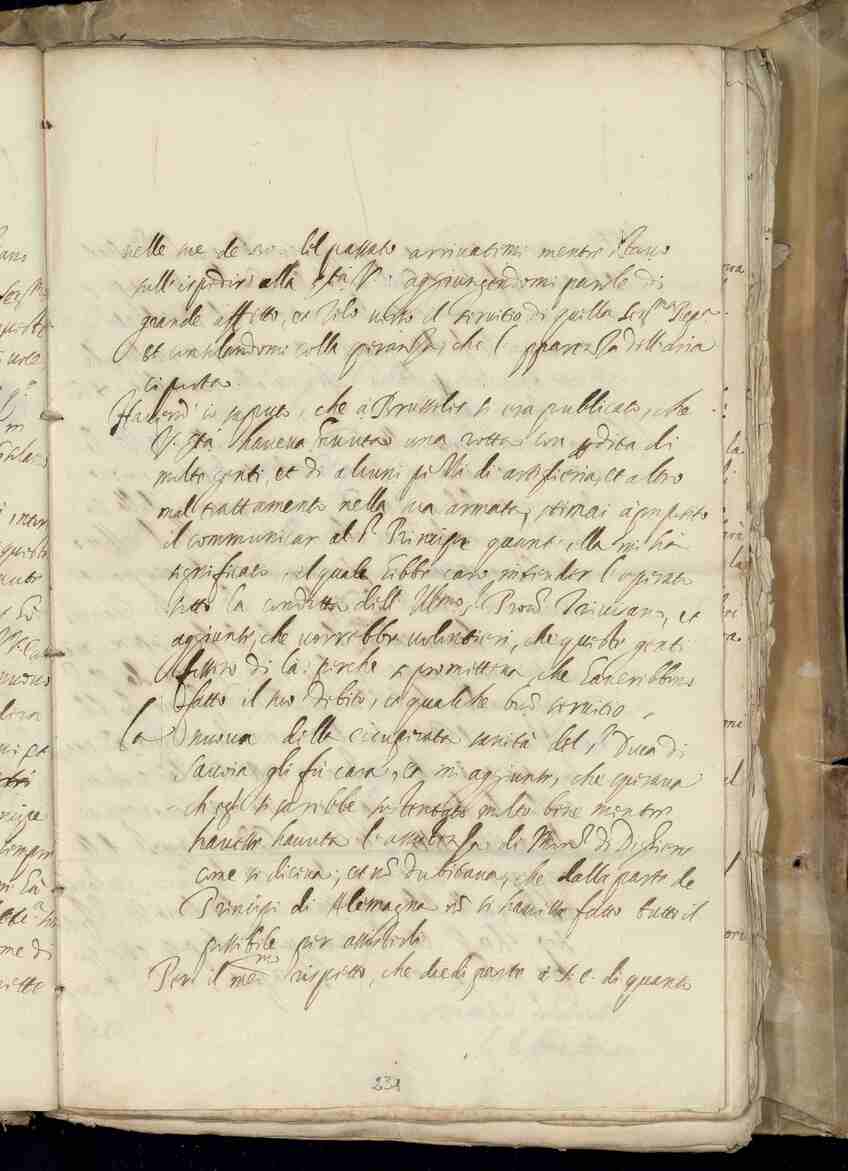 nelle sue de del passato arrivatemi mentre stavo
nell'ispedire alla S.tà V. aggiungendomi parole di
grande affetto, et zelo verso il servitio di quella Ser.ma Rep.ca
et consolandomi colla speranza, che l'apparenza dell'aria
Havend' io saputo, che à Brusseles si era publicato, che
V. S.tà haveva havuto una rotta con perdita di
molte genti, et di alcuni pezzi di artiglieria, et altro
mal trattamento nella sua armata, stimai à proposito
il communicar al S.r Principe quanto ella mi hà
significato, il quale hebbe caro intender l'operato
sotto la condotta dell' Illmo S.r Prov.r Trivisano, et
aggiunse, che vorrebbe volentieri, che queste genti
fossero di là: perche si prometteva, che haverebbono
fatto il suo debito, et qualche bon servitio
La nuova della ricuperata sanità del S.r Duca di
Savoia gli fù cara, et mi aggiunse, che sperava
ch'egli si sarebbe sostentato molto bene mentre
havesse havuta l'assistenza di di
come si diceva; et nò dubitava, che dalla parte de
Principi di Alemagna nò si havesse fatto tutto il
possibile per assisterli
Per il med.mo rispetto, che diedi parte à S. E. di quanto
239